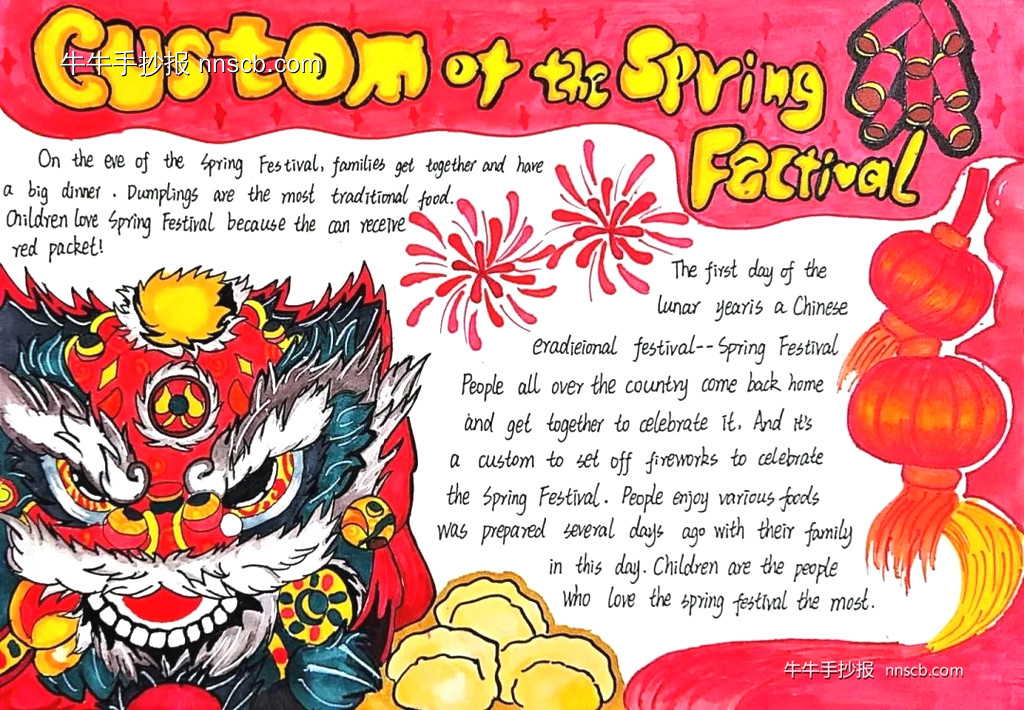 Custom of the Spring
Festival
牛牛手抄报 nnscb.com
On the eve of the Spring Festival, families get together and have
a big dinner. Dumplings are the most traditional food.
Children love Spring Festival because the can receive
red packet!
The first day of the
lunar yearis a Chinese
eradieional festival--Spring Festival
People all over the country come back home
and get together to celebrate it. And it's
a custom to set off fireworks to celebrate
the Spring Festival. People enjoy various foods
was prepared several days ago with their family
in this day. Children are the people
who love the spring festival the most.
牛牛手抄报 nnscb.com